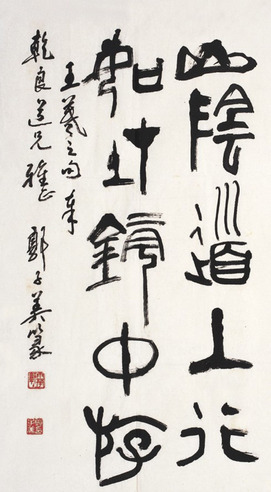 山陰道上行
如在鏡中游
王羲之句 奉
乾良道兄雅正 郭子美篆